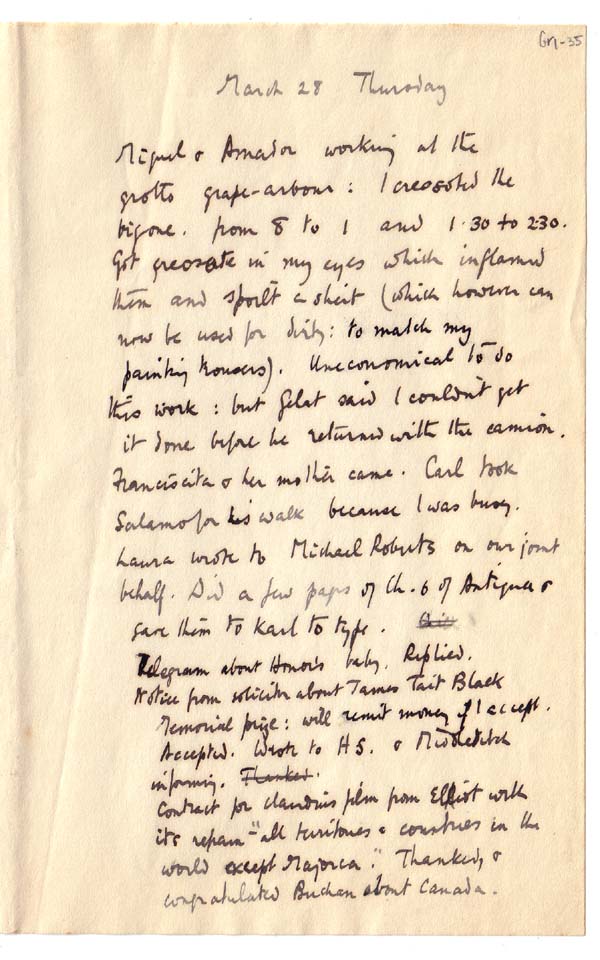 GM-35
March 28 Thursday
Miguel & Amador working at the
grotto grape-arbour : I creosoted the
big one. from 8 to 1 and 1.30 to 2.30.
Got creosote in my eyes which inflamed
them and spoilt a shirt (which however can
now be used for dirty: to match my
painting trousers). Uneconomical to do
this work : but Gelat said I couldn't get
it done before he returned with the camion.
Franciscita & her mother came. Carl took
Salamo for his walk because I was busy.
Laura wrote to Michael Roberts on our joint
behalf. Did a few pages of Ch. 6 of Antigua &
gave them to Karl to type.
Telegram about Honor's baby. Replied.
Notice from solicitor about James Tait Black
Memorial prize : will remit money if I accept.
Accepted. Wrote to H S. & Middleditch
informing. Thanked.
Contract for Claudius film from Elliot with
its refrain "all territories & countries in the
world except Majorca." Thanked, &
congratulated Buchan about Canada.